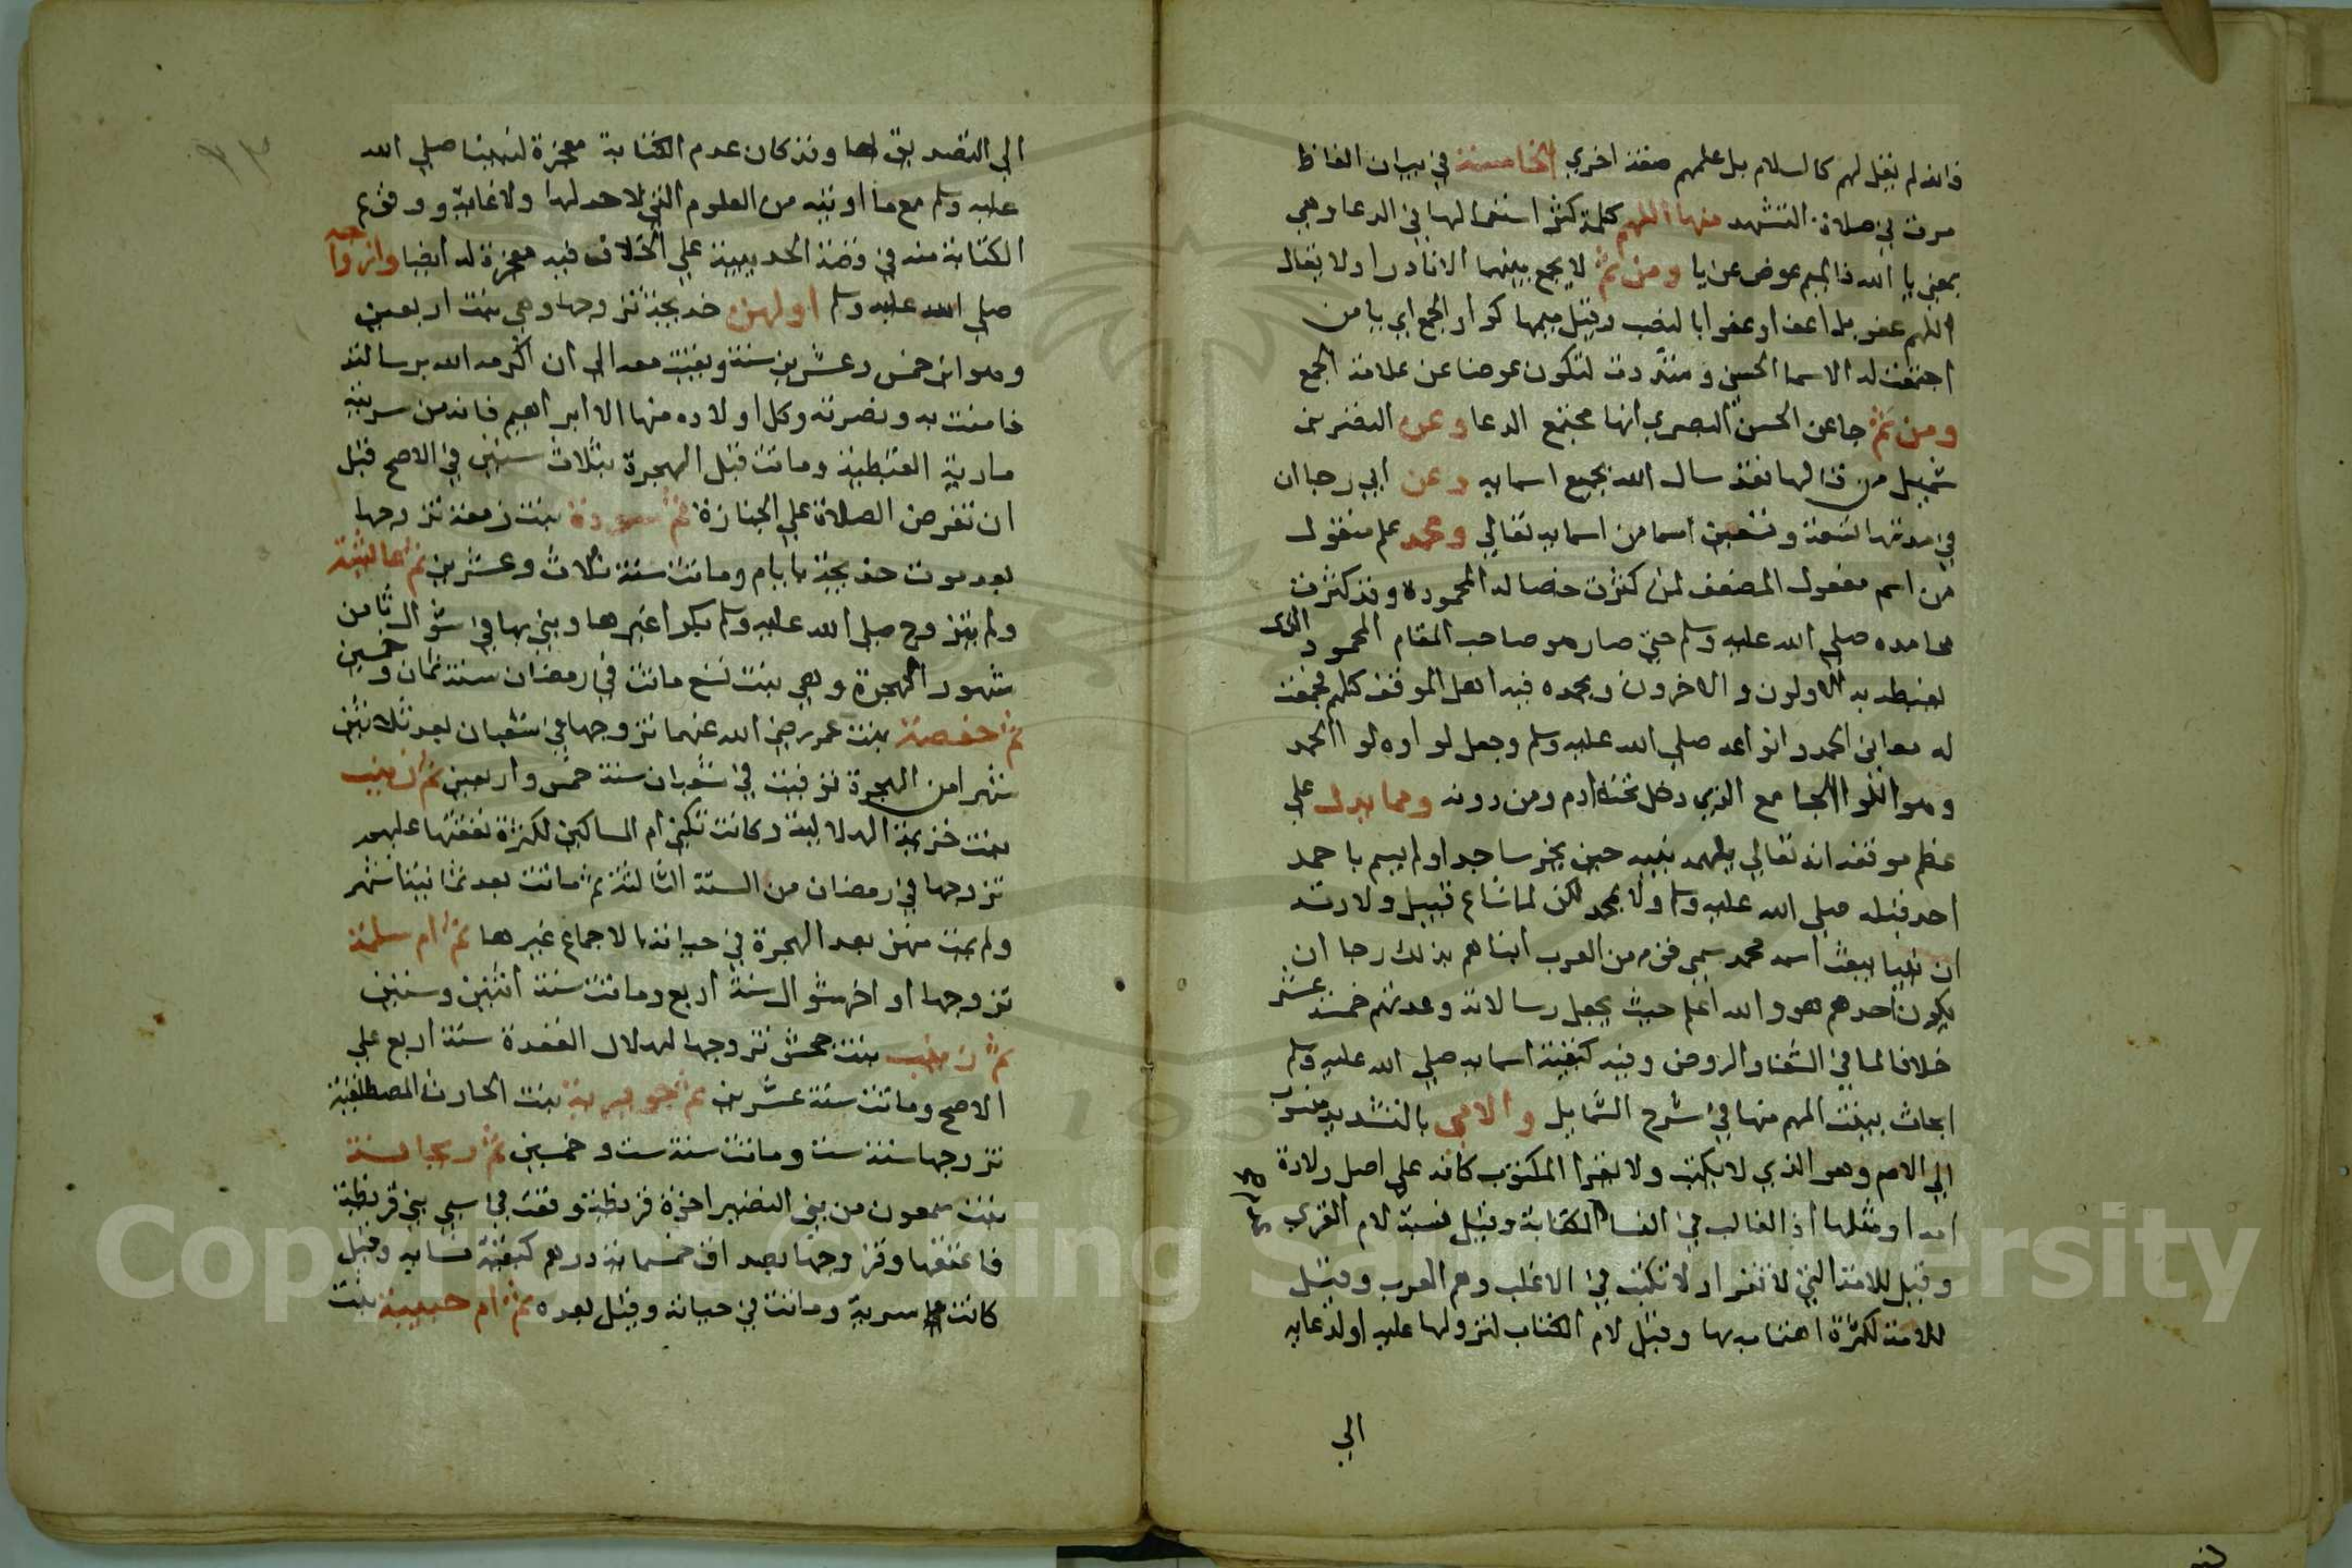 فانه لم يقل لهم كالسلام بل علمهم صفة اخري الخامسة في بيان الفاظ
مرت في صلاة التشهد منها اللهم كلمة كثر استعمالها في الدعا وهي
بمعني يا الله فالميم عوض عن يا ومن ثم لا يجمع بينهما الا نادرا ولا يقال
اللهم عفو بل اعف او عفوا بالنصب وقيل ميمها كواو الجمع اي يا من
اجتمعت له الاسما الحسني وشددت لتكون عوضا عن علامة الجمع
ومن ثم جا عن الحسن البصري انها مجتمع الدعا وعن النضر بن
شميل من قالها فقد سال الله بجميع اسمايه وعن ابي رجا ان
في ميمها تسعة وتسعين اسما من اسمايه تعالي ومحمد علم منقول
من اسم مفعول المضعف لمن كثرت خصاله المحمودة وقد كثرت
محامده صلي الله عليه وسلم حتي صار هو صاحب المقام المحمود الذي
يغبطه به الاولون والاخرون ويحمده فيه اهل الموقف كلهم فجمعت
له معاني الحمد وانواعه صلي الله عليه وسلم وجعل لواوه لوا الحمد
وهو اللوا الجامع الذي دخل تحته ادم ومن دونه ومما يدل علي
عظم موقعه انه تعالي يلهمه بتيه حين يخر ساجدا ولم يسم باحمد
احد قبله صلي الله عليه وسلم ولا بمحمد لكن لما شاع قبيل ولادته
ان نبيا يبعث اسمه محمد سمي قوم من العرب ابناهم بذلك رجا ان
يكون احدهم هو والله اعلم حيث يجعل رسالاته وعدتهم خمسة عشر
خلافا لما في الشفا والروض وفيه كبقية اسمايه صلي الله عليه وسلم
ابحاث بينت المهم منها في شرح الشمايل والامي بالتشديد منسوب
الي الام وهو الذي لا يكتب ولا يقرا المكتوب كانه علي اصل ولادة
امه او مثلها اذ الغالب في النسا الكتابة وقيل نسبة لام القري
وقيل للامة التي لا تقرا ولا تكتب في الاغلب وهم العرب وقيل
للامة لكثرة اهتمامه بها وقيل لام الكتاب لنزولها عليه او لدعايه
الي
الي التصديق لها وقد كان عدم الكتابة معجزة لنبينا صلي الله
عليه وسلم مع ما اوتيه من العلوم التي لا حد لها ولا غاية ووقوع
الكتابة منه في قصة الحديبية علي الخلاف فيه معجزة له ايضا وازواجه
صلي الله عليه وسلم اولهن خديجة تزوجها وهي بنت اربعين
وهو ابن خمس وعشرين سنة وبقيت معه الي ان اكرمه الله برسالته
فامنت به ونصرته وكل اولاده منها الا ابراهيم فانه من سريته
مارية القبطية وماتت قبل الهجرة بثلاث سنين في الاصح قبل
ان تفرض الصلاة علي الجنازة ثم سودة بنت زمعة تزوجها
بعد موت خديجة بايام وماتت سنة ثلاث وعشرين ثم عائشة
ولم يتزوج صلي الله عليه وسلم بكرا غيرها وبني بها في شوال ثامن
شهور الهجرة وهي بنت تسع ماتت في رمضان سنة ثمان وخمسين
ثم حفصة بنت عمر رضي الله عنهما تزوجها في شعبان بعد ثلاثين
شهرا من الهجرة توفيت في شعبان سنة خمس واربعين ثم زينب
بنت خزيمة الهلالية وكانت تكني ام المساكين لكثرة نفقتها عليهم
تزوجها في رمضان من السنة الثالثة ثم ماتت بعد ثمانية اشهر
ولم يمت منهن بعد الهجرة في حياته بالاجماع غيرها ثم ام سلمة
تزوجها اواخر شوال سنة اربع وماتت سنة اثنين وستين
ثم زينب بنت جحش تزوجها لهلال القعدة سنة اربع علي
الاصح وماتت سنة عشرين ثم جويرية بنت الحارث المصطلقية
تزوجها سنة ست وماتت سنة ست وخمسين ثم ريحانة
بنت سمعون من بني النضير اخوة قريظة وقعت في سبي بني قريظة
فاعتقها وتزوجها بصداق خمسماية درهم كبقية نسايه وقيل
كانت سرية وماتت في حياته وقيل بعده ثم ام حبيبة بنت
Copyright © King Saud University